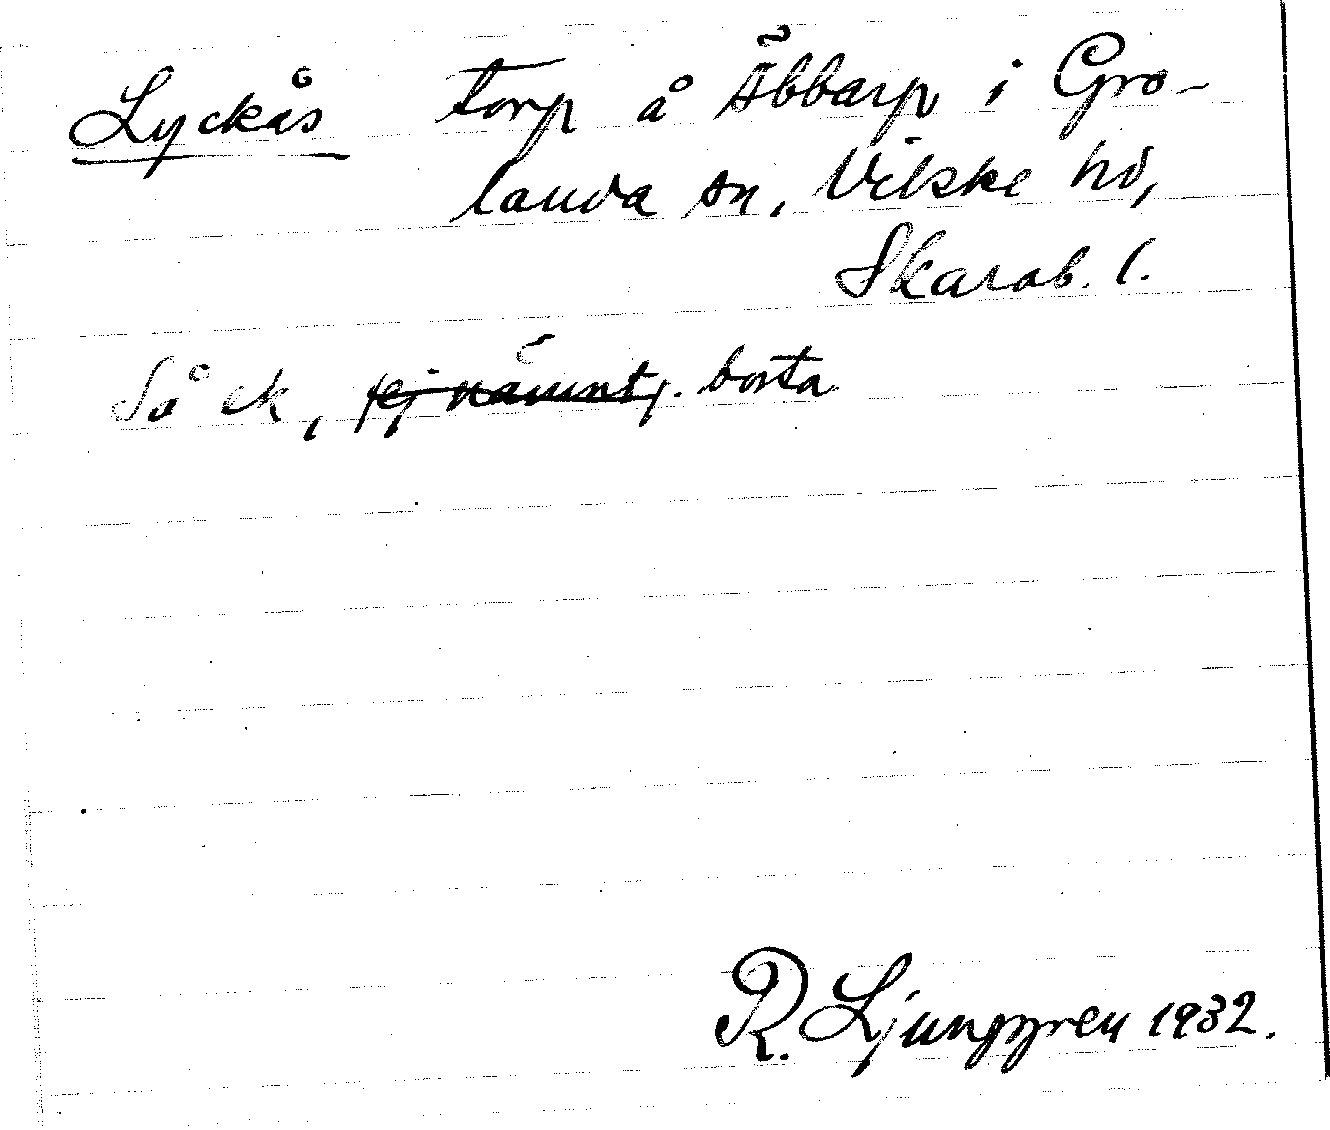 Lyckås torp å Äbbarp i Gro-
landa sn, Vilske hd,
Skarab. l.
Så ek, (ej nämnt). borta
R. Ljunggren 1932.